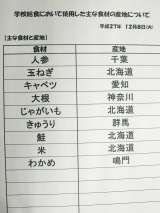 学校給食において使用した主な食材の産地について
平成27年 12月8日(火)
【主な食材と産地】
食材 産地
人参 千葉
玉ねぎ 北海道
キャベツ 愛知
大根 神奈川
じゃがいも 北海道
きゅうり 群馬
鮭 北海道
米 北海道
わかめ 鳴門